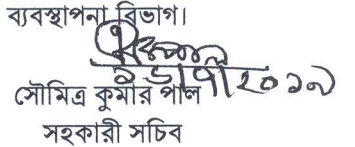 ব্যবস্থাপনা বিভাগ।
সৌমিত্র কুমার পাল
সহকারী সচিব